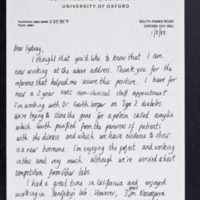 UNIVERSITY OF OXFORD
SOUTH PARKS ROAD
OXFORD OX1 3QU
Dear Sydney,
I thought that you'd like to know that I am
now working at the above address. Thank you for the
reference that helped me secure this position. I have for
now a 2 year MRC non-clinical staff appointment.
I'm working with Dr. Garth Cooper on Type 2 diabetes.
We're trying to clone the gene for a protein called amylin
which Garth purified from the pancreas of patients
with the disease and which we have evidence to show
is a new hormone. I'm enjoying the project and working
in this and very much, although we're worried about
competition from other labs.
I had a great time in California and enjoyed
working in lab. However,